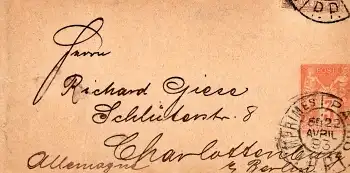 P.P.
Herrn
Richard Giese
Schlüterstr. 8
Charlottenburg
Allemagne b/ Berlin
IMPRIMÉS PA
AVRIL
93